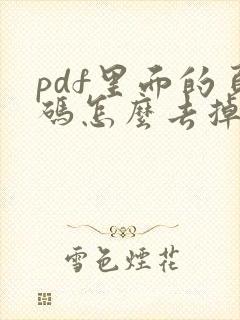 pdf里而的頁
碼怎麼去掉
雪色煙花